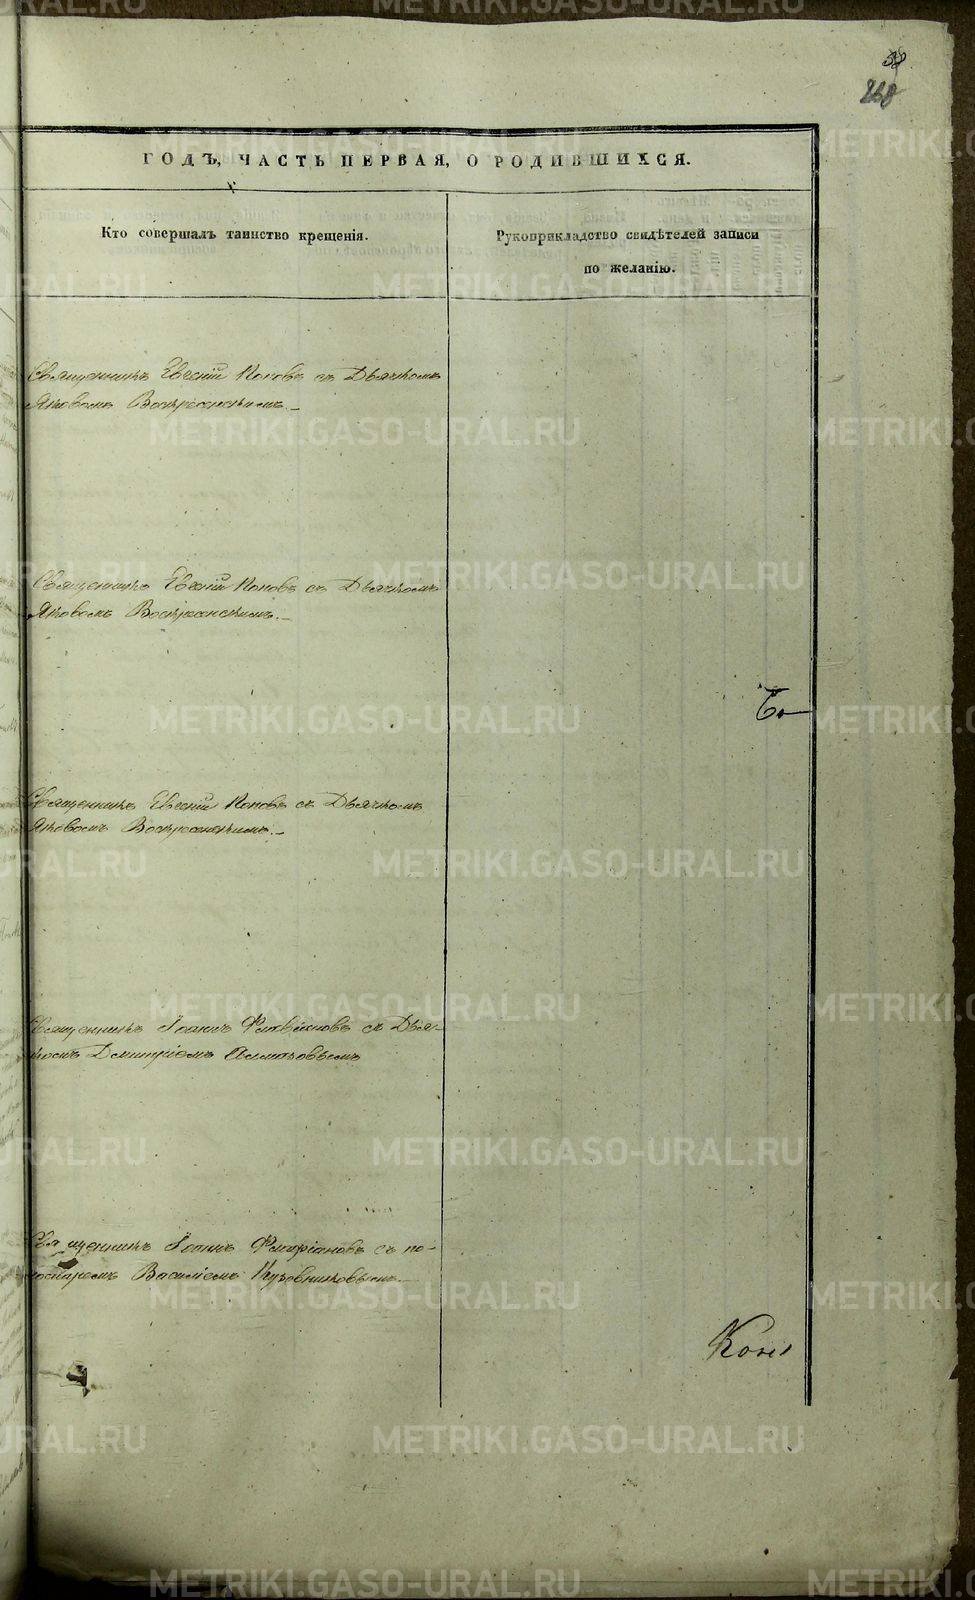 268
ГОДЪ, ЧАСТЬ ПЕРВАЯ, О РОДИВШИХСЯ.
Кто совершалъ таинство крещенія.
Рукоприкладство свидѣтелей записи
по желанію.
Священникъ Евгеній Поповъ съ Дьячкомъ
Яковомъ Воскресенскимъ.
Священникъ Евгеній Поповъ съ Дьячкомъ
Яковомъ Воскресенскимъ.
Священникъ Евгеній Поповъ съ Дьячкомъ
Яковомъ Воскресенскимъ.
Священникъ Іоаннъ съ Дья-
комъ Дмитріемъ
Священникъ Іоаннъ съ по-
номаремъ Василіемъ
METRIKI.GASO-URAL.RU